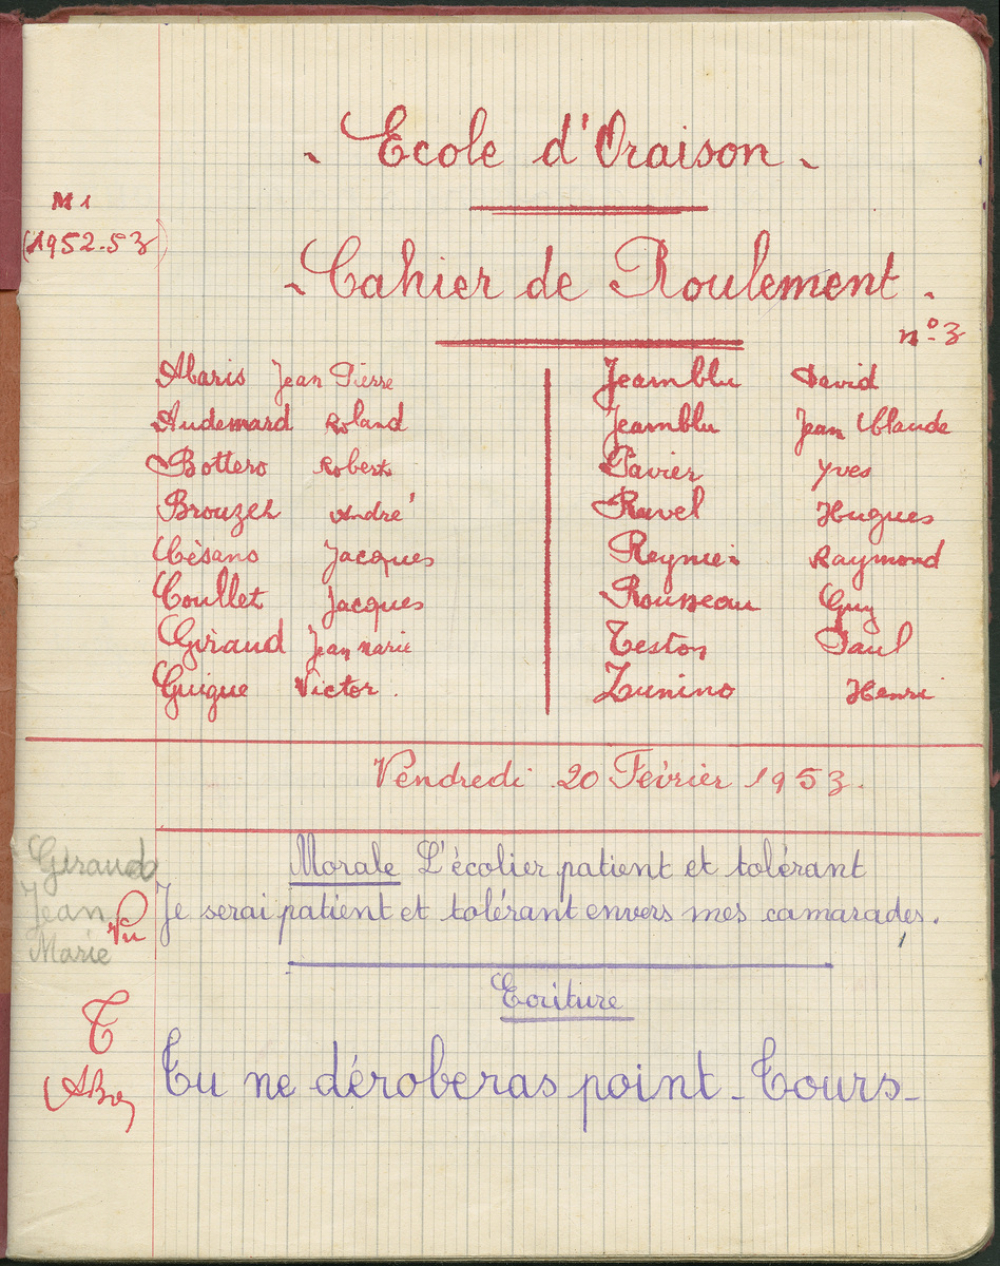 - Ecole d'Oraison -
M1
(1952-53)
- Cahier de Roulement.
n° 3
Abaris Jean Pierre
Audemard Roland
Bottero Robert
Brouzet André
Césano Jacques
Coullet Jacques
Giraud Jean Marie
Guigue Victor.
Jeamblu David
Jeamblu Jean Claude
Pavier Yves
Ravel Hugues
Reynier Raymond
Rousseau Guy
Teston Paul
Zunino Henri
Vendredi 20 Février 1953.
Giraud
Jean
Marie
Vu
Morale L'écolier patient et tolérant
Je serai patient et tolérant envers mes camarades.
Ecriture
T
Tu ne déroberas point - Tours -